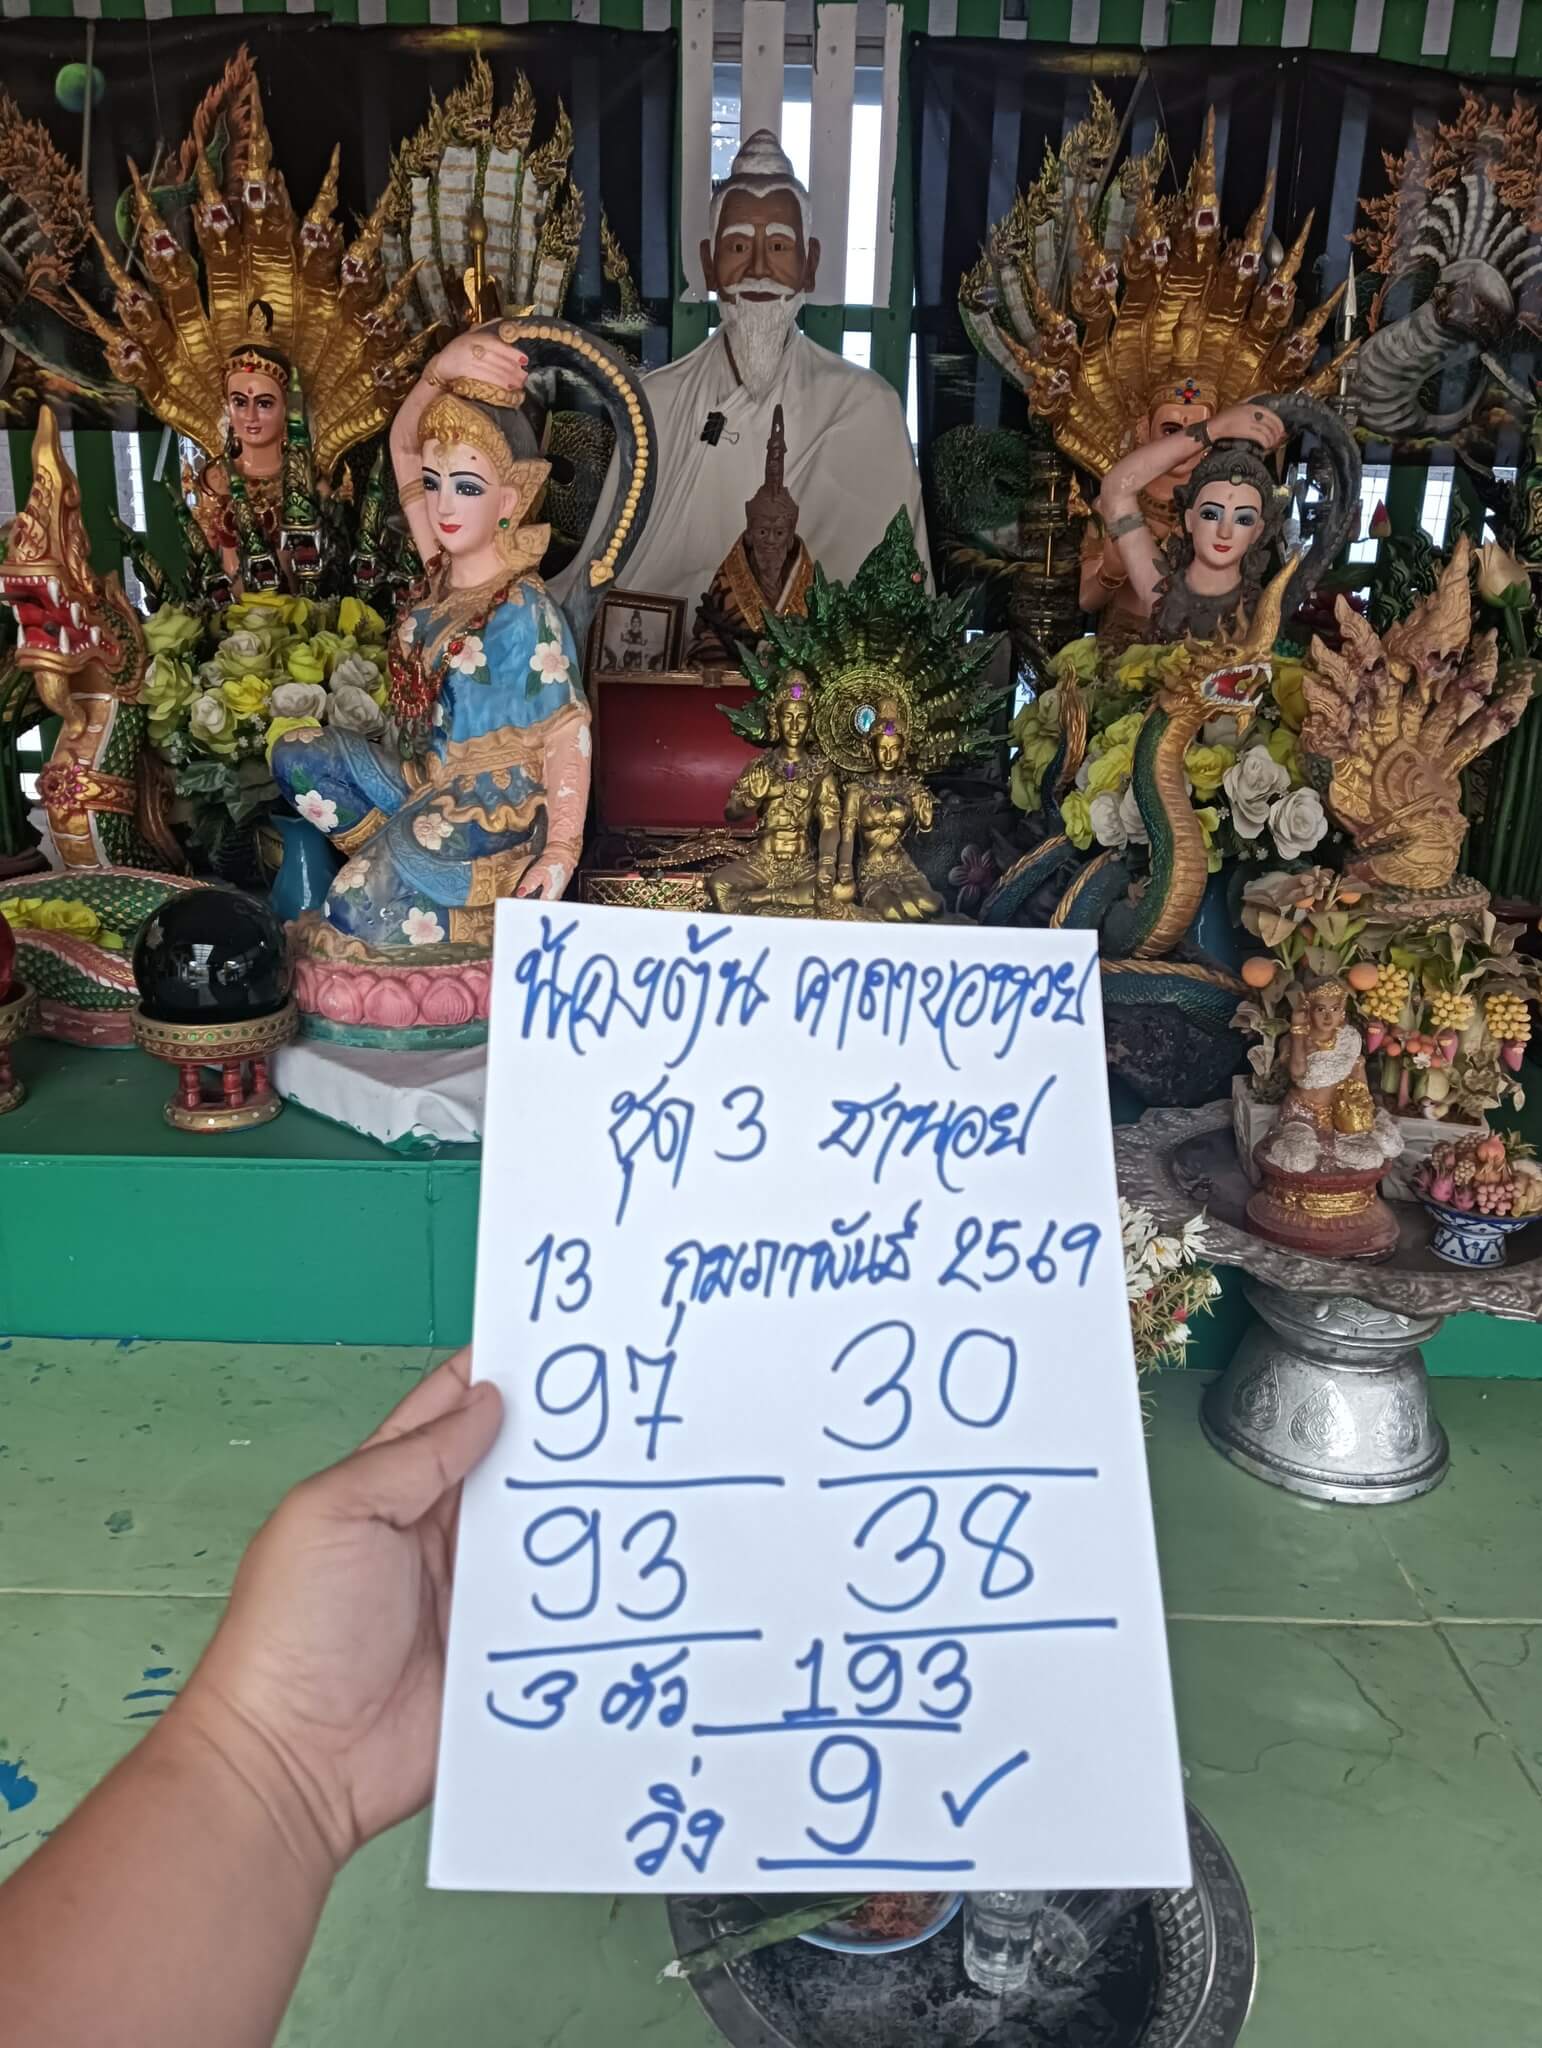 น้องต้น คาถาขอหวย
ชุด 3 ฮานอย
13 กุมภาพันธ์ 2569
97 30
93 38
3 ตัว 193
วิ่ง 9 ✓